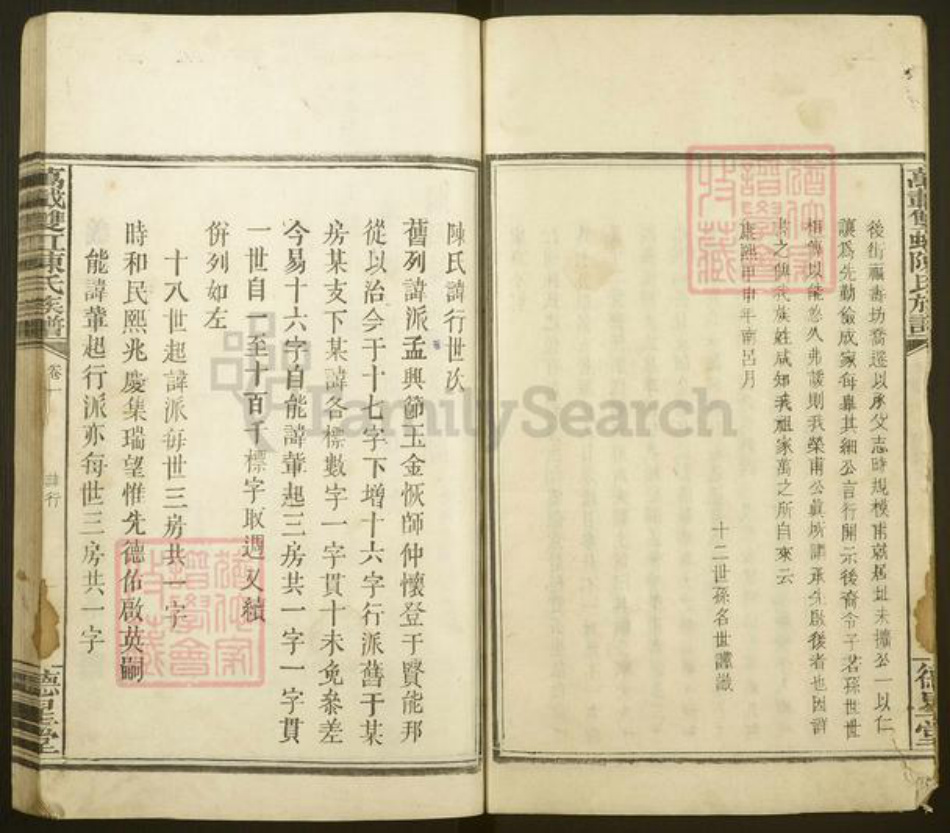 後街福壽坊喬遷以承父志時規模甫就居址未擴公一以仁
讓爲先勤儉成家每舉其細公言行開示後裔令子若孫世世
相傳以能悠久弗諼則我榮甫公眞承先啟後者也因
之與我族姓咸知我祖家萬之所自來云
康熙甲申年南呂月
十二世孫名世謹識
陳氏諱行世次
舊列諱派孟興節玉金恢師仲懷登于賢能邦
從以治今于十七字下增十六字行派舊于某
房某支下某諱各標數字一字貫十未免參差
今易十六字自能諱輩起三房共一字一字貫
一世自一至十百千標字取週又續
倂列如左
十八世起諱派每世三房共一字
時和民熙兆慶集瑞望惟先德佑啟英嗣
能諱輩起行派亦每世三房共一字
萬載雙虹陳氏族譜
卷一
行
德星堂
FamilySearch